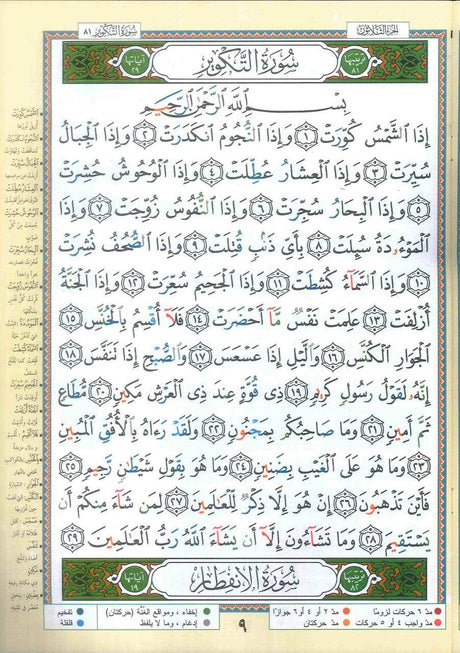 الجزء الثلاثون
سورة التكوير ٨١
ترتيبها ٨١
سُورَةُ التَّكْوِيرِ
آياتها ٢٩
بِسْمِ اللَّهِ الرَّحْمَٰنِ الرَّحِيمِ
إِذَا الشَّمْسُ كُوِّرَتْ ١ وَإِذَا النُّجُومُ انكَدَرَتْ ٢ وَإِذَا الْجِبَالُ
سُيِّرَتْ ٣ وَإِذَا الْعِشَارُ عُطِّلَتْ ٤ وَإِذَا الْوُحُوشُ حُشِرَتْ
٥ وَإِذَا الْبِحَارُ سُجِّرَتْ ٦ وَإِذَا النُّفُوسُ زُوِّجَتْ ٧ وَإِذَا
الْمَوْءُودَةُ سُئِلَتْ ٨ بِأَيِّ ذَنۢبٍ قُتِلَتْ ٩ وَإِذَا الصُّحُفُ نُشِرَتْ
١٠ وَإِذَا السَّمَآءُ كُشِطَتْ ١١ وَإِذَا الْجَحِيمُ سُعِّرَتْ ١٢ وَإِذَا الْجَنَّةُ
أُزْلِفَتْ ١٣ عَلِمَتْ نَفْسٌ مَّآ أَحْضَرَتْ ١٤ فَلَآ أُقْسِمُ بِالْخُنَّسِ ١٥
الْجَوَارِ الْكُنَّسِ ١٦ وَالَّيْلِ إِذَا عَسْعَسَ ١٧ وَالصُّبْحِ إِذَا تَنَفَّسَ ١٨
إِنَّهُۥ لَقَوْلُ رَسُولٍ كَرِيمٍ ١٩ ذِى قُوَّةٍ عِندَ ذِى الْعَرْشِ مَكِينٍ ٢٠ مُّطَاعٍ
ثَمَّ أَمِينٍ ٢١ وَمَا صَاحِبُكُم بِمَجْنُونٍ ٢٢ وَلَقَدْ رَءَاهُ بِالْأُفُقِ الْمُبِينِ
٢٣ وَمَا هُوَ عَلَى الْغَيْبِ بِضَنِينٍ ٢٤ وَمَا هُوَ بِقَوْلِ شَيْطَٰنٍ رَّجِيمٍ ٢٥
فَأَيْنَ تَذْهَبُونَ ٢٦ إِنْ هُوَ إِلَّا ذِكْرٌ لِّلْعَالَمِينَ ٢٧ لِمَن شَآءَ مِنكُمْ أَن
يَسْتَقِيمَ ٢٨ وَمَا تَشَآءُونَ إِلَّآ أَن يَشَآءَ اللَّهُ رَبُّ الْعَالَمِينَ ٢٩
ترتيبها ٨٢
سُورَةُ الانفِطَارِ
آياتها ١٩
مدّ ٦ حركات لزوماً
مدّ ٢ أو ٤ أو ٦ جوازاً
إخفاء، ومواقع الغُنَّة (حركتان)
تفخيم
مدّ واجب ٤ أو ٥ حركات
مدّ حركتان
إدغام، وما لا يلفظ
قلقلة
٩